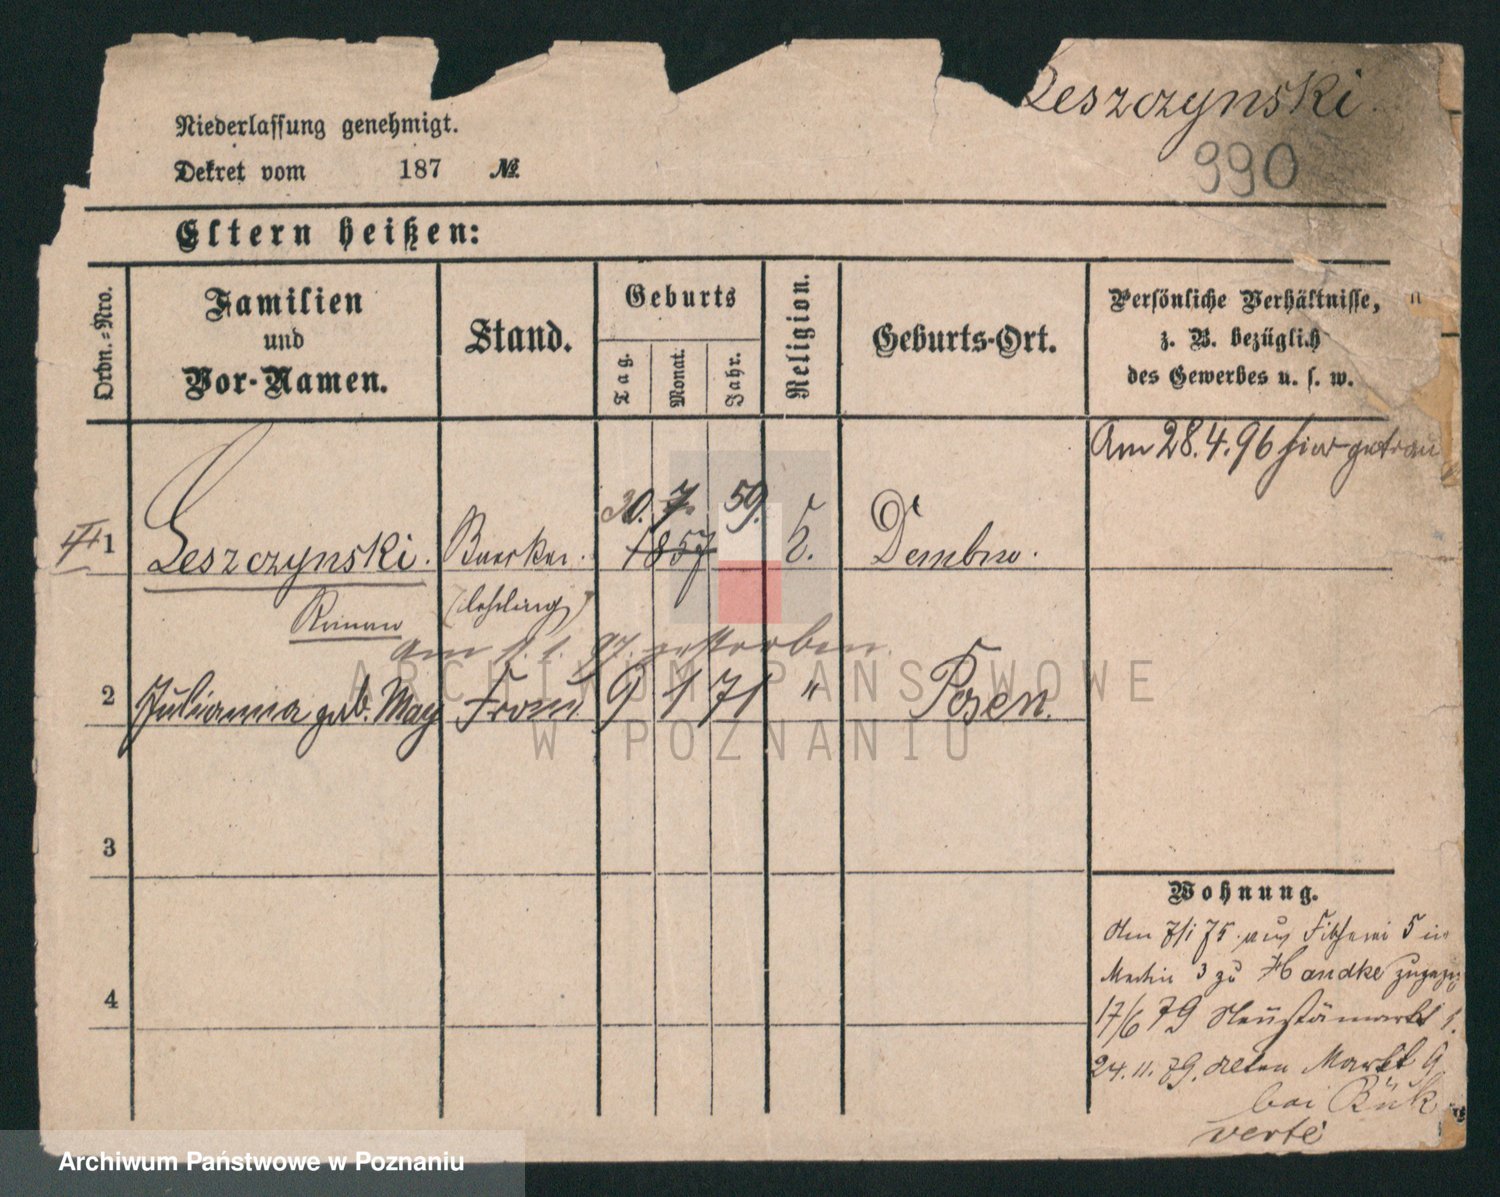 Leszczynski
990
Niederlassung genehmigt.
Dekret vom 187 №
Eltern heißen:
Ordn.-Nro.
Familien
und
Vor-Namen.
Stand.
Geburts
Tag.
Monat.
Jahr.
Religion.
Geburts-Ort.
Persönliche Verhältnisse,
z. B. bezüglich
des Gewerbes u. s. w.
Am 28.4.96 hier getrau
II 1 Leszczynski. 30. 7. 59. Dembno.
1857
Roman (Lehrling)
am 1. 1. 97. gestorben.
2 Julianna geb. May Frau 9 1 71 " Posen.
3
4
Wohnung.
Am 7/1 75 aus Fischerei 5 in
3 zu Handke
17/6 79 Neustädtmarkt
24.11.79. Alten Markt 9
bei
verte
ARCHIWUM PAŃSTWOWE
W POZNANIU
Archiwum Państwowe w Poznaniu